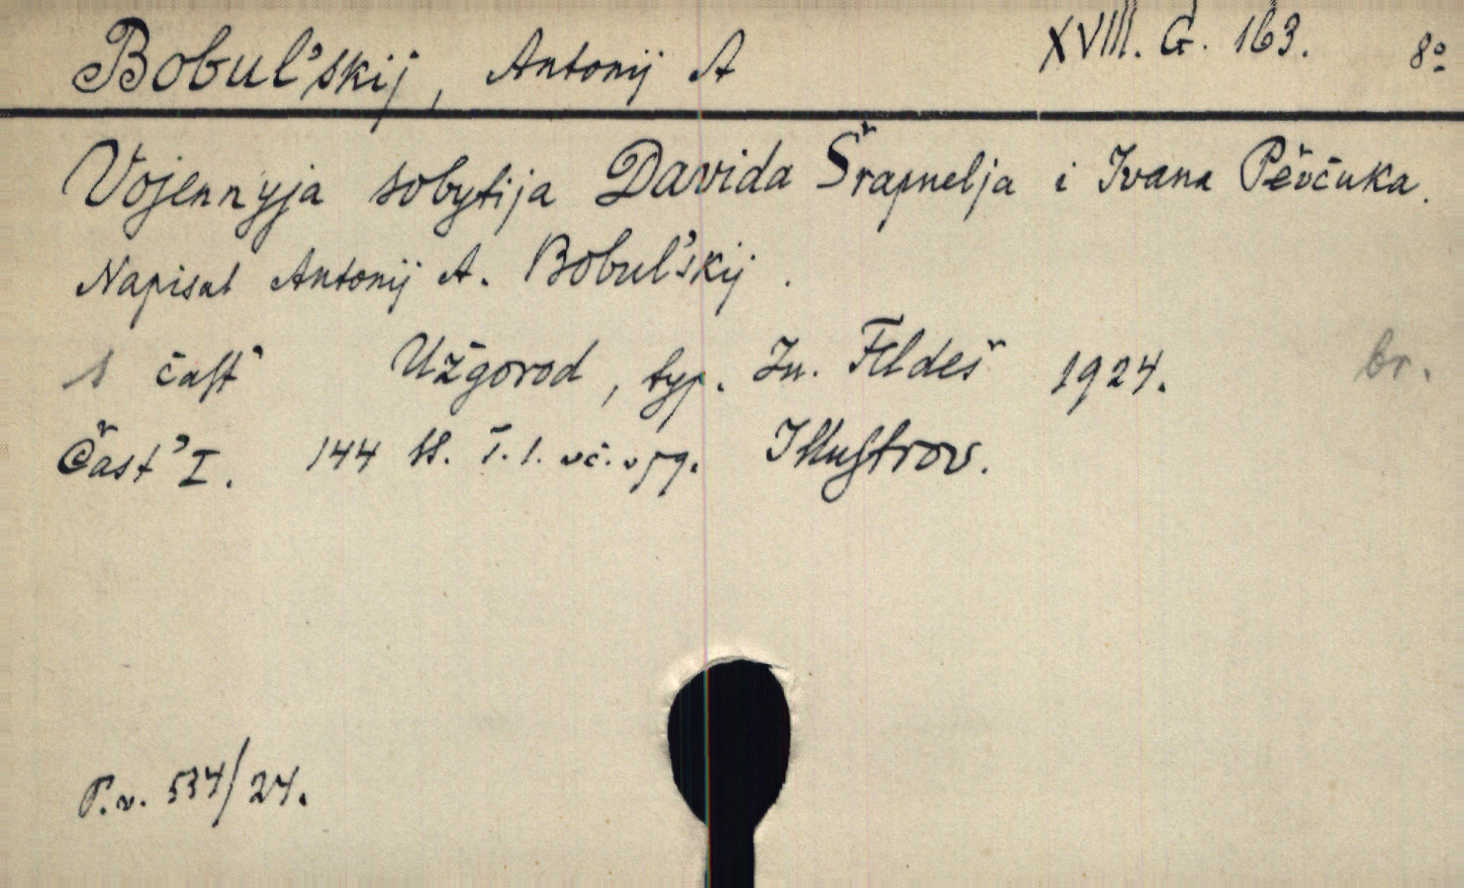 Bobul'skij, Antonij A XVIII. G. 163. 8°
Vojennyja sobytija Davida Šrapnelja i Ivana Pěvčuka.
Napisal Antonij A. Bobul'skij.
1 časť Užgorod, typ. Ju. Feldeš 1924. br.
Časť I. 144 Illustrov.
P.v. 534/24.